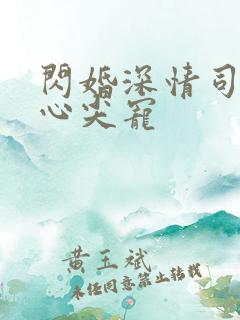 閃婚深情司
心尖寵
黄玉斌
未經同意禁止轉載